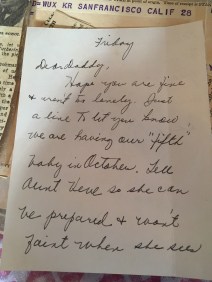 =WUX KR SANFRANCISCO CALIF 28
Friday
Dear daddy,
Hope you are fine
& aren't to lonely. Just
a line to let you know
we are having our "fifth"
baby in October. Tell
Aunt Vene so she can
be prepared & won't
faint when she sees